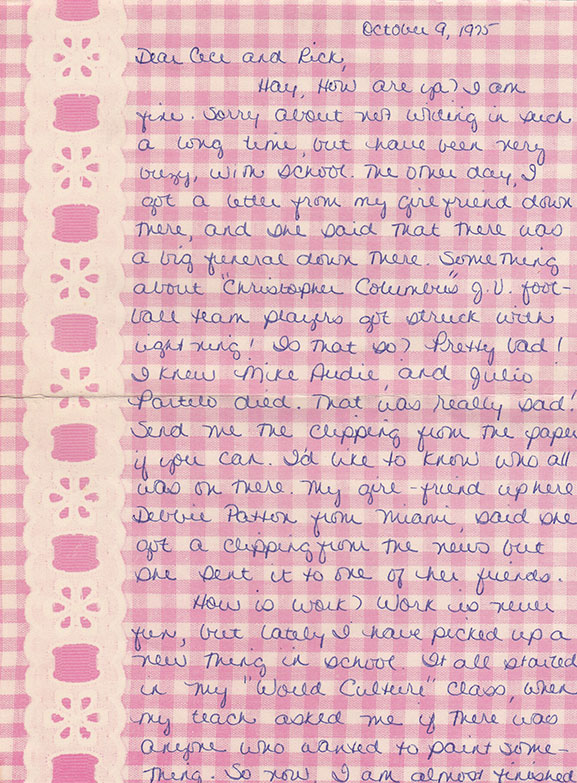 October 9, 1975
Dear Cece and Rick,
Hay, How are ya? I am
fine. Sorry about not writing in such
a long time, but have been very
buzy, with school. The other day, I
got a letter from my girlfriend down
there, and she said that there was
a big funeral down there. Something
about "Christopher Columbus" J.V. foot-
ball team players got struck with
lightning! Is that so? Pretty bad!
I knew Mike Audie, and Julio
Partelo died. That was really sad!
Send me the clipping from the paper
if you can. I'd like to know who all
was on there. My girl-friend up here
Debbie Patton from Miami, said she
got a clipping from the news but
she sent it to one of her friends.
How is work? Work is never
fun, but lately I have picked up a
new thing in school. It all started
in my "World Culture" class, when
my teach asked me if there was
anyone who wanted to paint some-
thing. So now, I am almost finished